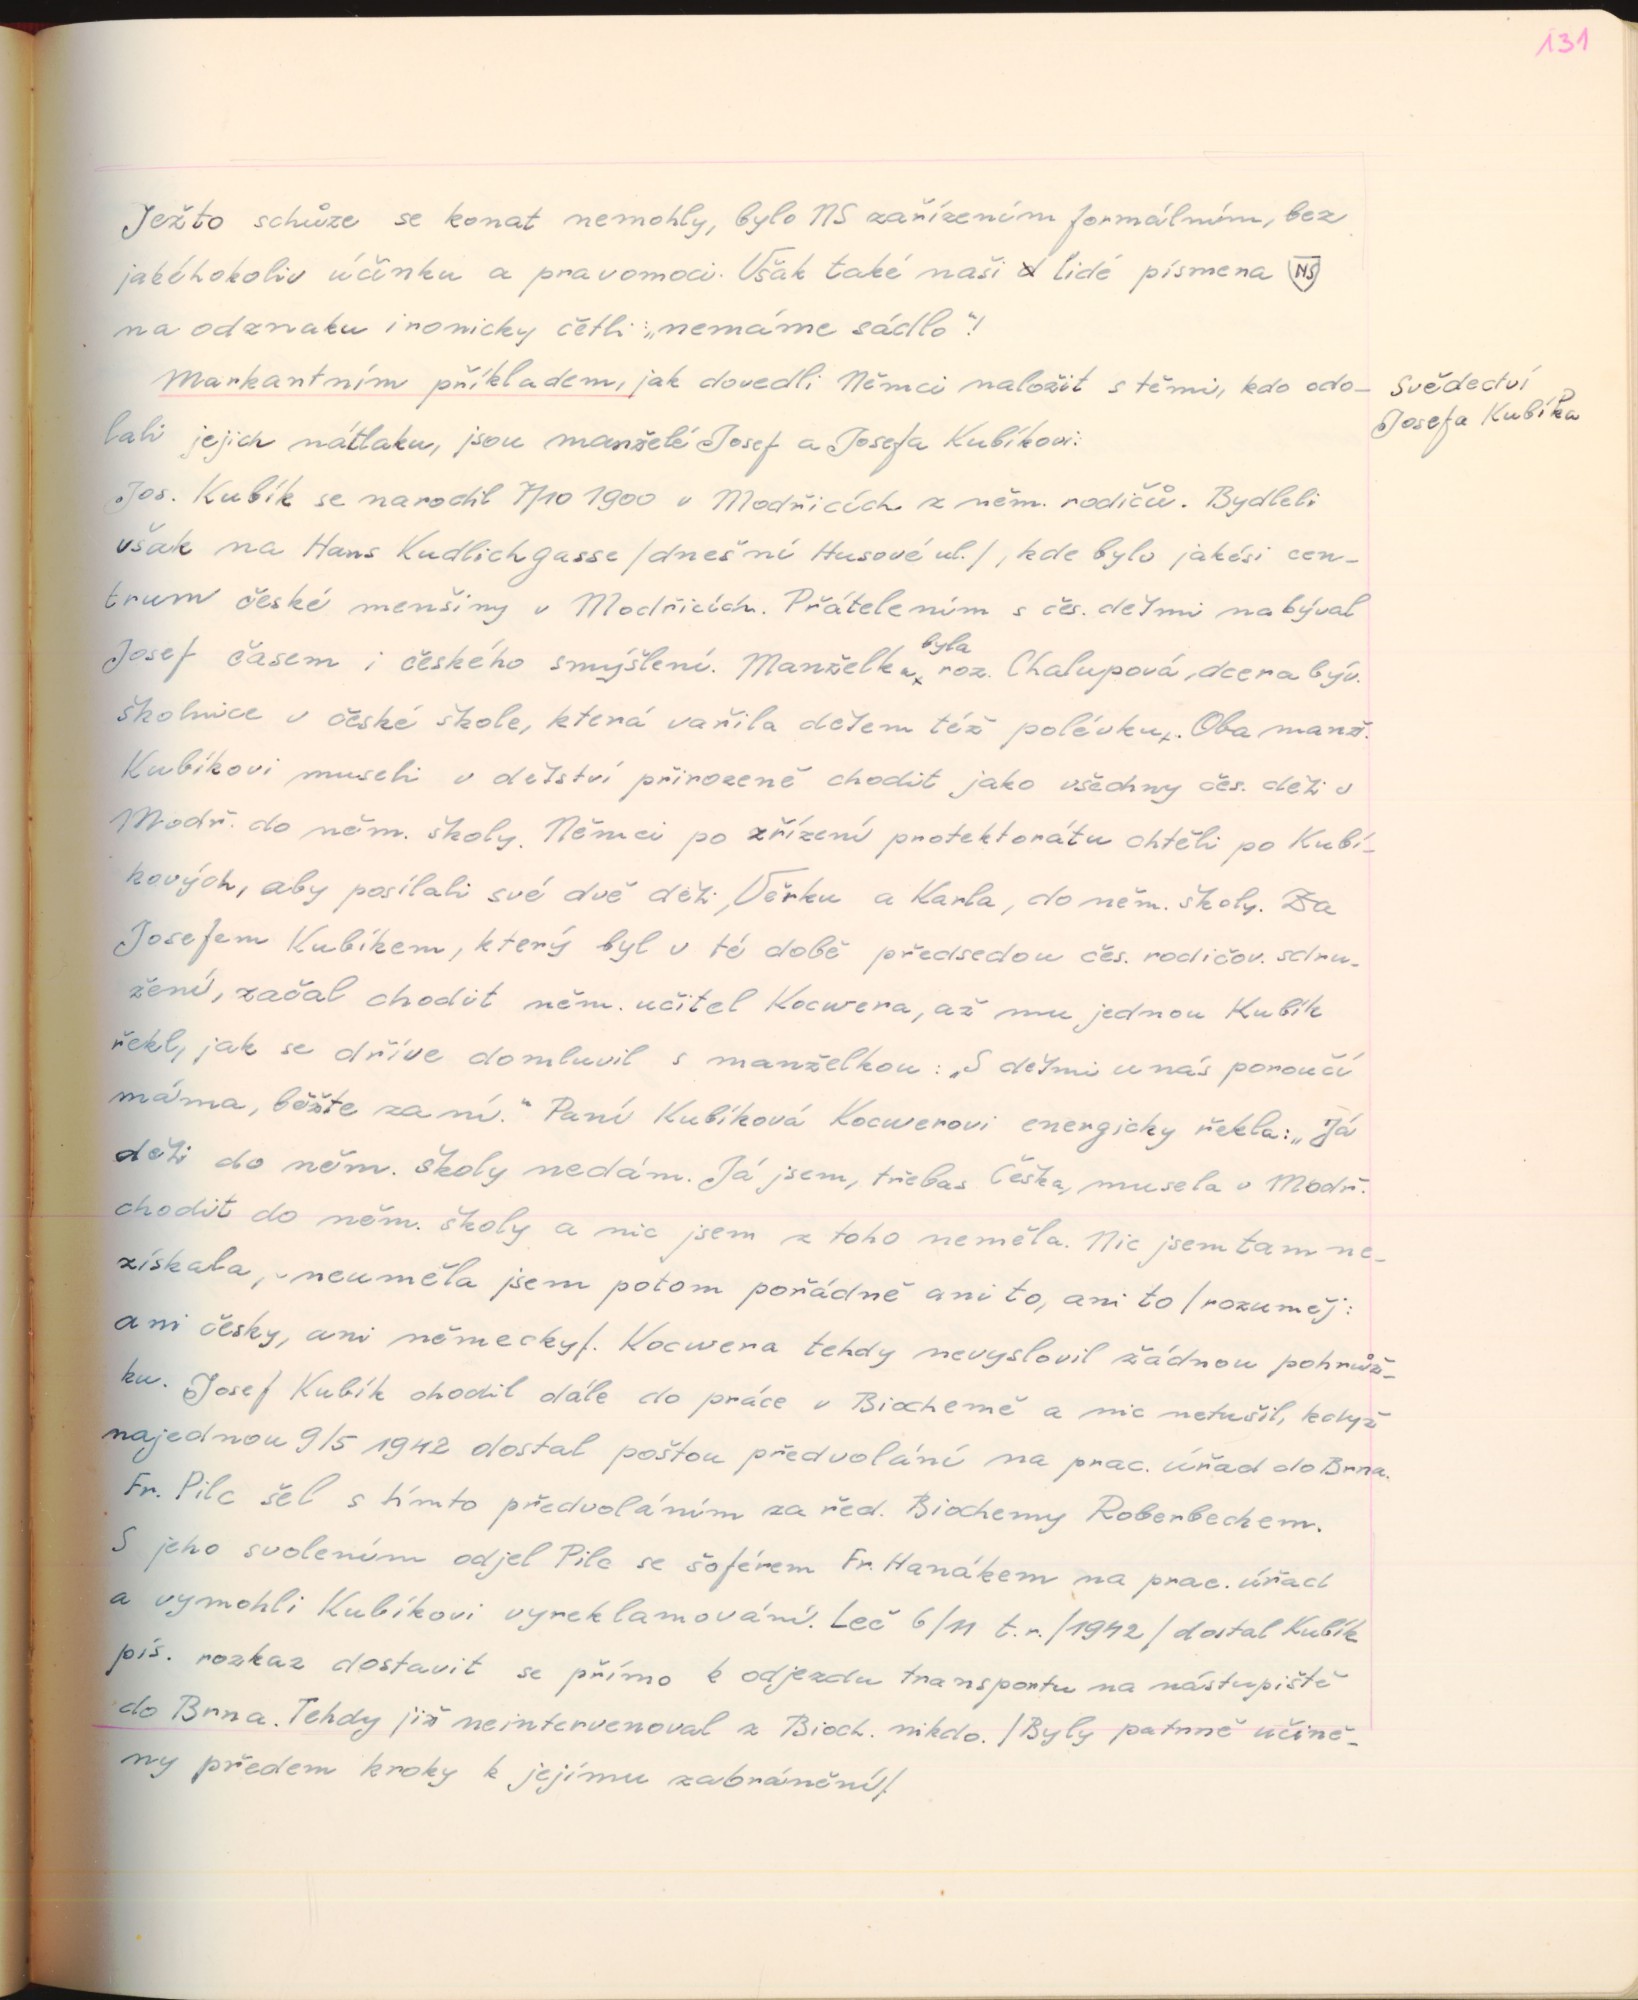 131
Ježto schůze se konat nemohly, bylo NS zařízením formálním, bez
jakéhokoliv účinku a pravomoci. Však také naši lidé písmena NS
na odznaku ironicky četli: „nemáme sádlo“!
Markantním příkladem, jak dovedli Němci naložit s těmi, kdo odo-
lali jejich nátlaku, jsou manželé Josef a Josefa Kubíkovi:
Svědectví
Josefa Kubíka
Jos. Kubík se narodil 7/10 1900 v Modřicích z něm. rodičů. Bydleli
však na Hans Kudlichgasse /dnešní Husové ul./, kde bylo jakési cen-
trum české menšiny v Modřicích. Přátelením s čes. dětmi nabýval
Josef časem i českého smýšlení. Manželka byla roz. Chalupová, dcera býv.
školnice v české škole, která vařila dětem též polévku. Oba manž.
Kubíkovi museli v dětství přirozeně chodit jako všechny čes. děti v
Modř. do něm. školy. Němci po zřízení protektorátu chtěli po Kubí-
kových, aby posílali své dvě děti, Věrku a Karla, do něm. školy. Za
Josefem Kubíkem, který byl v té době předsedou čes. rodičov. sdru-
žení, začal chodit něm. učitel Kocwera, až mu jednou Kubík
řekl, jak se dříve domluvil s manželkou: „S dětmi u nás poroučí
máma, běžte za ní.“ Paní Kubíková Kocwerovi energicky řekla: „Já
děti do něm. školy nedám. Já jsem, třebas Češka, musela v Modř.
chodit do něm. školy a nic jsem z toho neměla. Nic jsem tam ne-
získala, neuměla jsem potom pořádně ani to, ani to /rozuměj:
ani česky, ani německy/. Kocwera tehdy nevyslovil žádnou pohrůž-
ku. Josef Kubík chodil dále do práce v Biochemě a nic netušil, když
najednou 9/5 1942 dostal poštou předvolání na prac. úřad do Brna.
Fr. Pilc šel s tímto předvoláním za řed. Biochemy Roberbechem.
S jeho svolením odjel Pilc se šoférem Fr. Hanákem na prac. úřad
a vymohli Kubíkovi vyreklamování. Leč 6/11 t.r. /1942/ dostal Kubík
pís. rozkaz dostavit se přímo k odjezdu transportu na nástupiště
do Brna. Tehdy již neintervenoval z Bioch. nikdo. /Byly patrně učině-
ny předem kroky k jejímu zabránění/